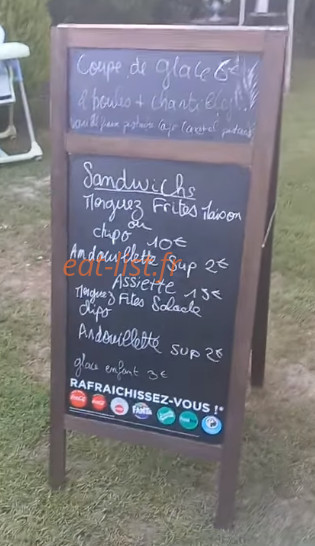 Coupe de glace 6€
2 boules + chantilly
Sandwichs
Merguez Frites Maison
ou
chipo 10€
Andouillette Sup 2€
eat-list.fr
Assiette 13€
Merguez Frites Salade
chipo
Andouillette sup 2€
glace enfant 3€
RAFRAICHISSEZ-VOUS !*
FANTA